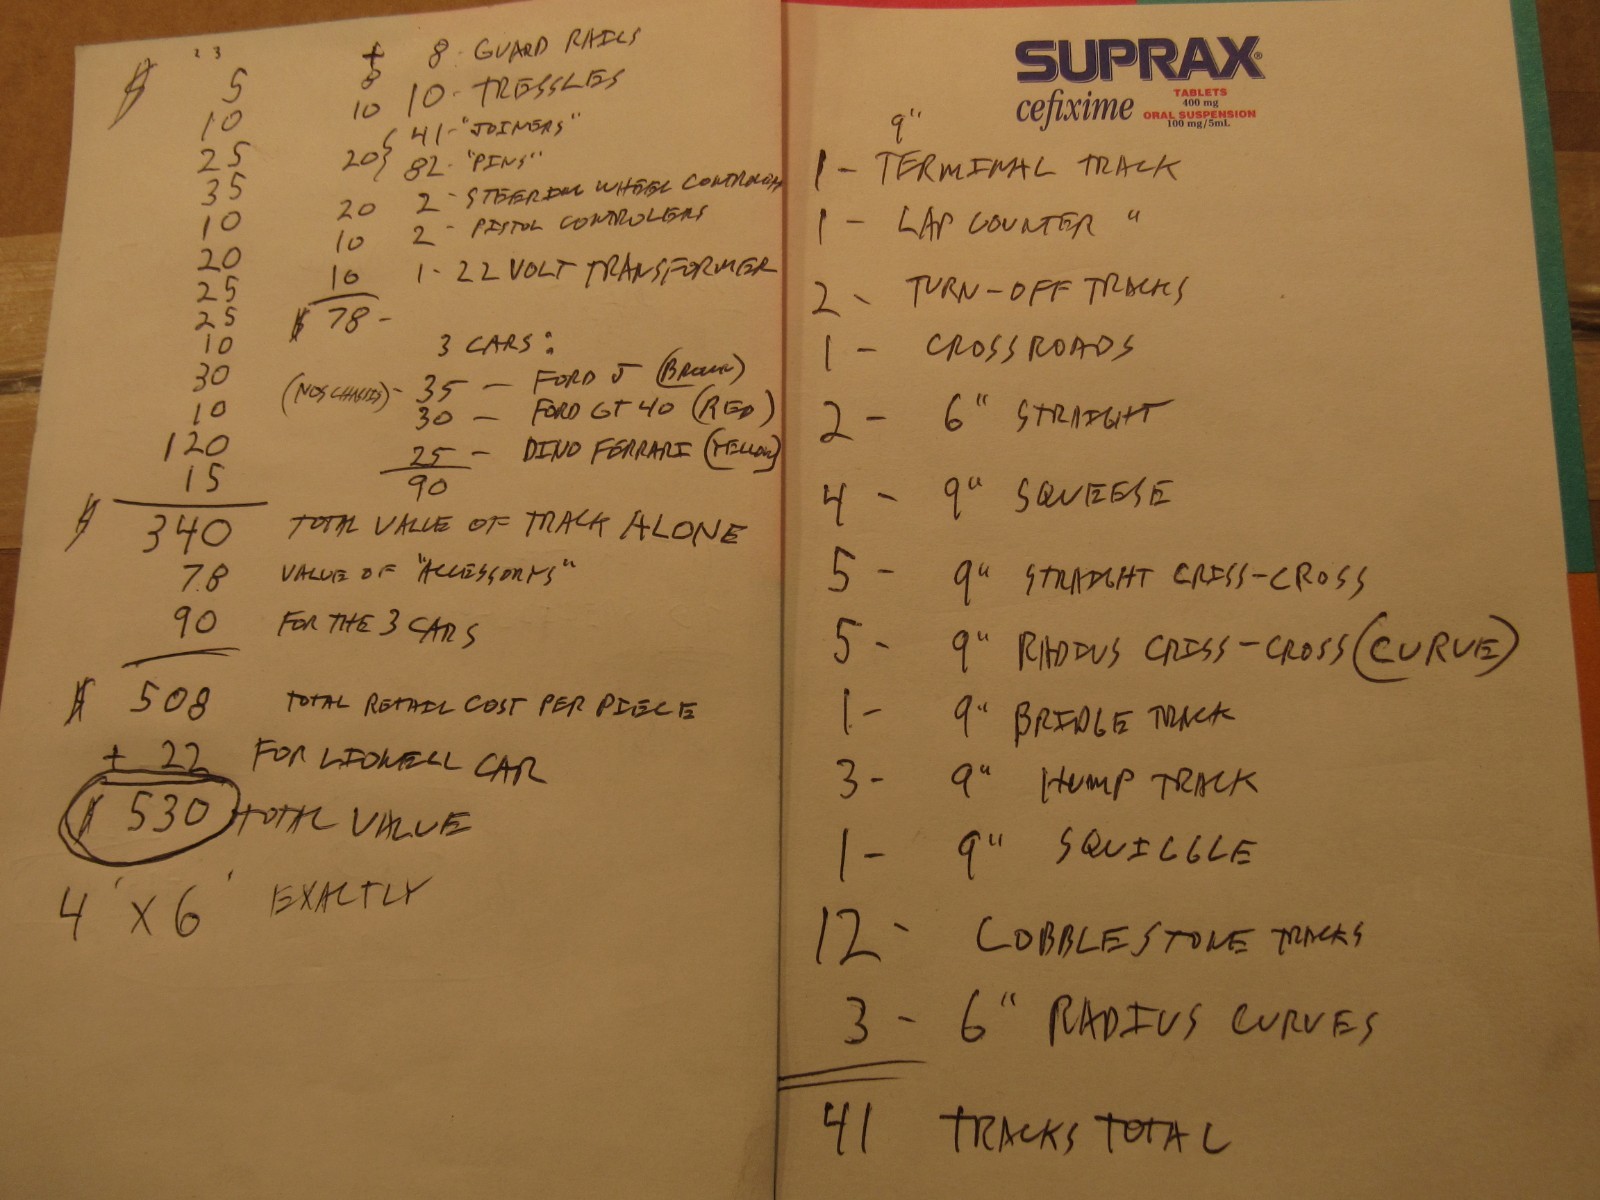 2 3
$ 5
10
25
35
10
20
25
25
10
30
10
120
15
$ 340 TOTAL VALUE OF TRACK ALONE
78 VALUE OF "ACCESSORIES"
90 FOR THE 3 CARS
$ 508 TOTAL RETAIL COST PER PIECE
+ 22 FOR LIONELL CAR
$ 530 TOTAL VALUE
4' X 6' EXACTLY
+ 8 - GUARD RAILS
8
10 10 - TRESSLES
41 - "JOINERS"
20 82 - "PINS"
20 2 - STEERING WHEEL
10 2 - PISTOL CONTROLERS
10 1 - 22 VOLT TRANSFORMER
$ 78 -
3 CARS:
(NOS CHASSIS) - 35 - FORD J (BROWN)
30 - FORD GT 40 (RED)
25 - DINO FERRARI (YELLOW)
90
SUPRAX®
cefixime TABLETS
400 mg
ORAL SUSPENSION
100 mg/5mL
9"
1 - TERMINAL TRACK
1 - LAP COUNTER "
2 - TURN-OFF TRACKS
1 - CROSSROADS
2 - 6" STRAIGHT
4 - 9" SQUEESE
5 - 9" STRAIGHT CRISS-CROSS
5 - 9" RADIUS CRISS-CROSS (CURVE)
1 - 9" BRIDGE TRACK
3 - 9" HUMP TRACK
1 - 9" SQUIGGLE
12 - COBBLESTONE TRACKS
3 - 6" RADIUS CURVES
41 TRACKS TOTAL